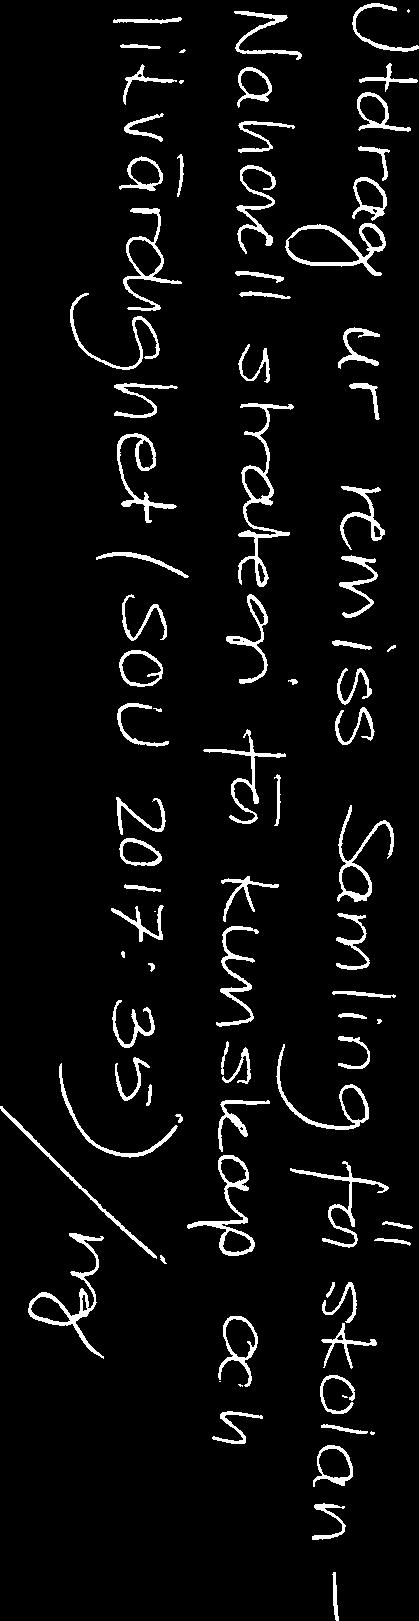 Utdrag ur remiss Samling för skolan -
Nationell strategi för kunskap och
likvärdighet (SOU 2017:35)
/ my